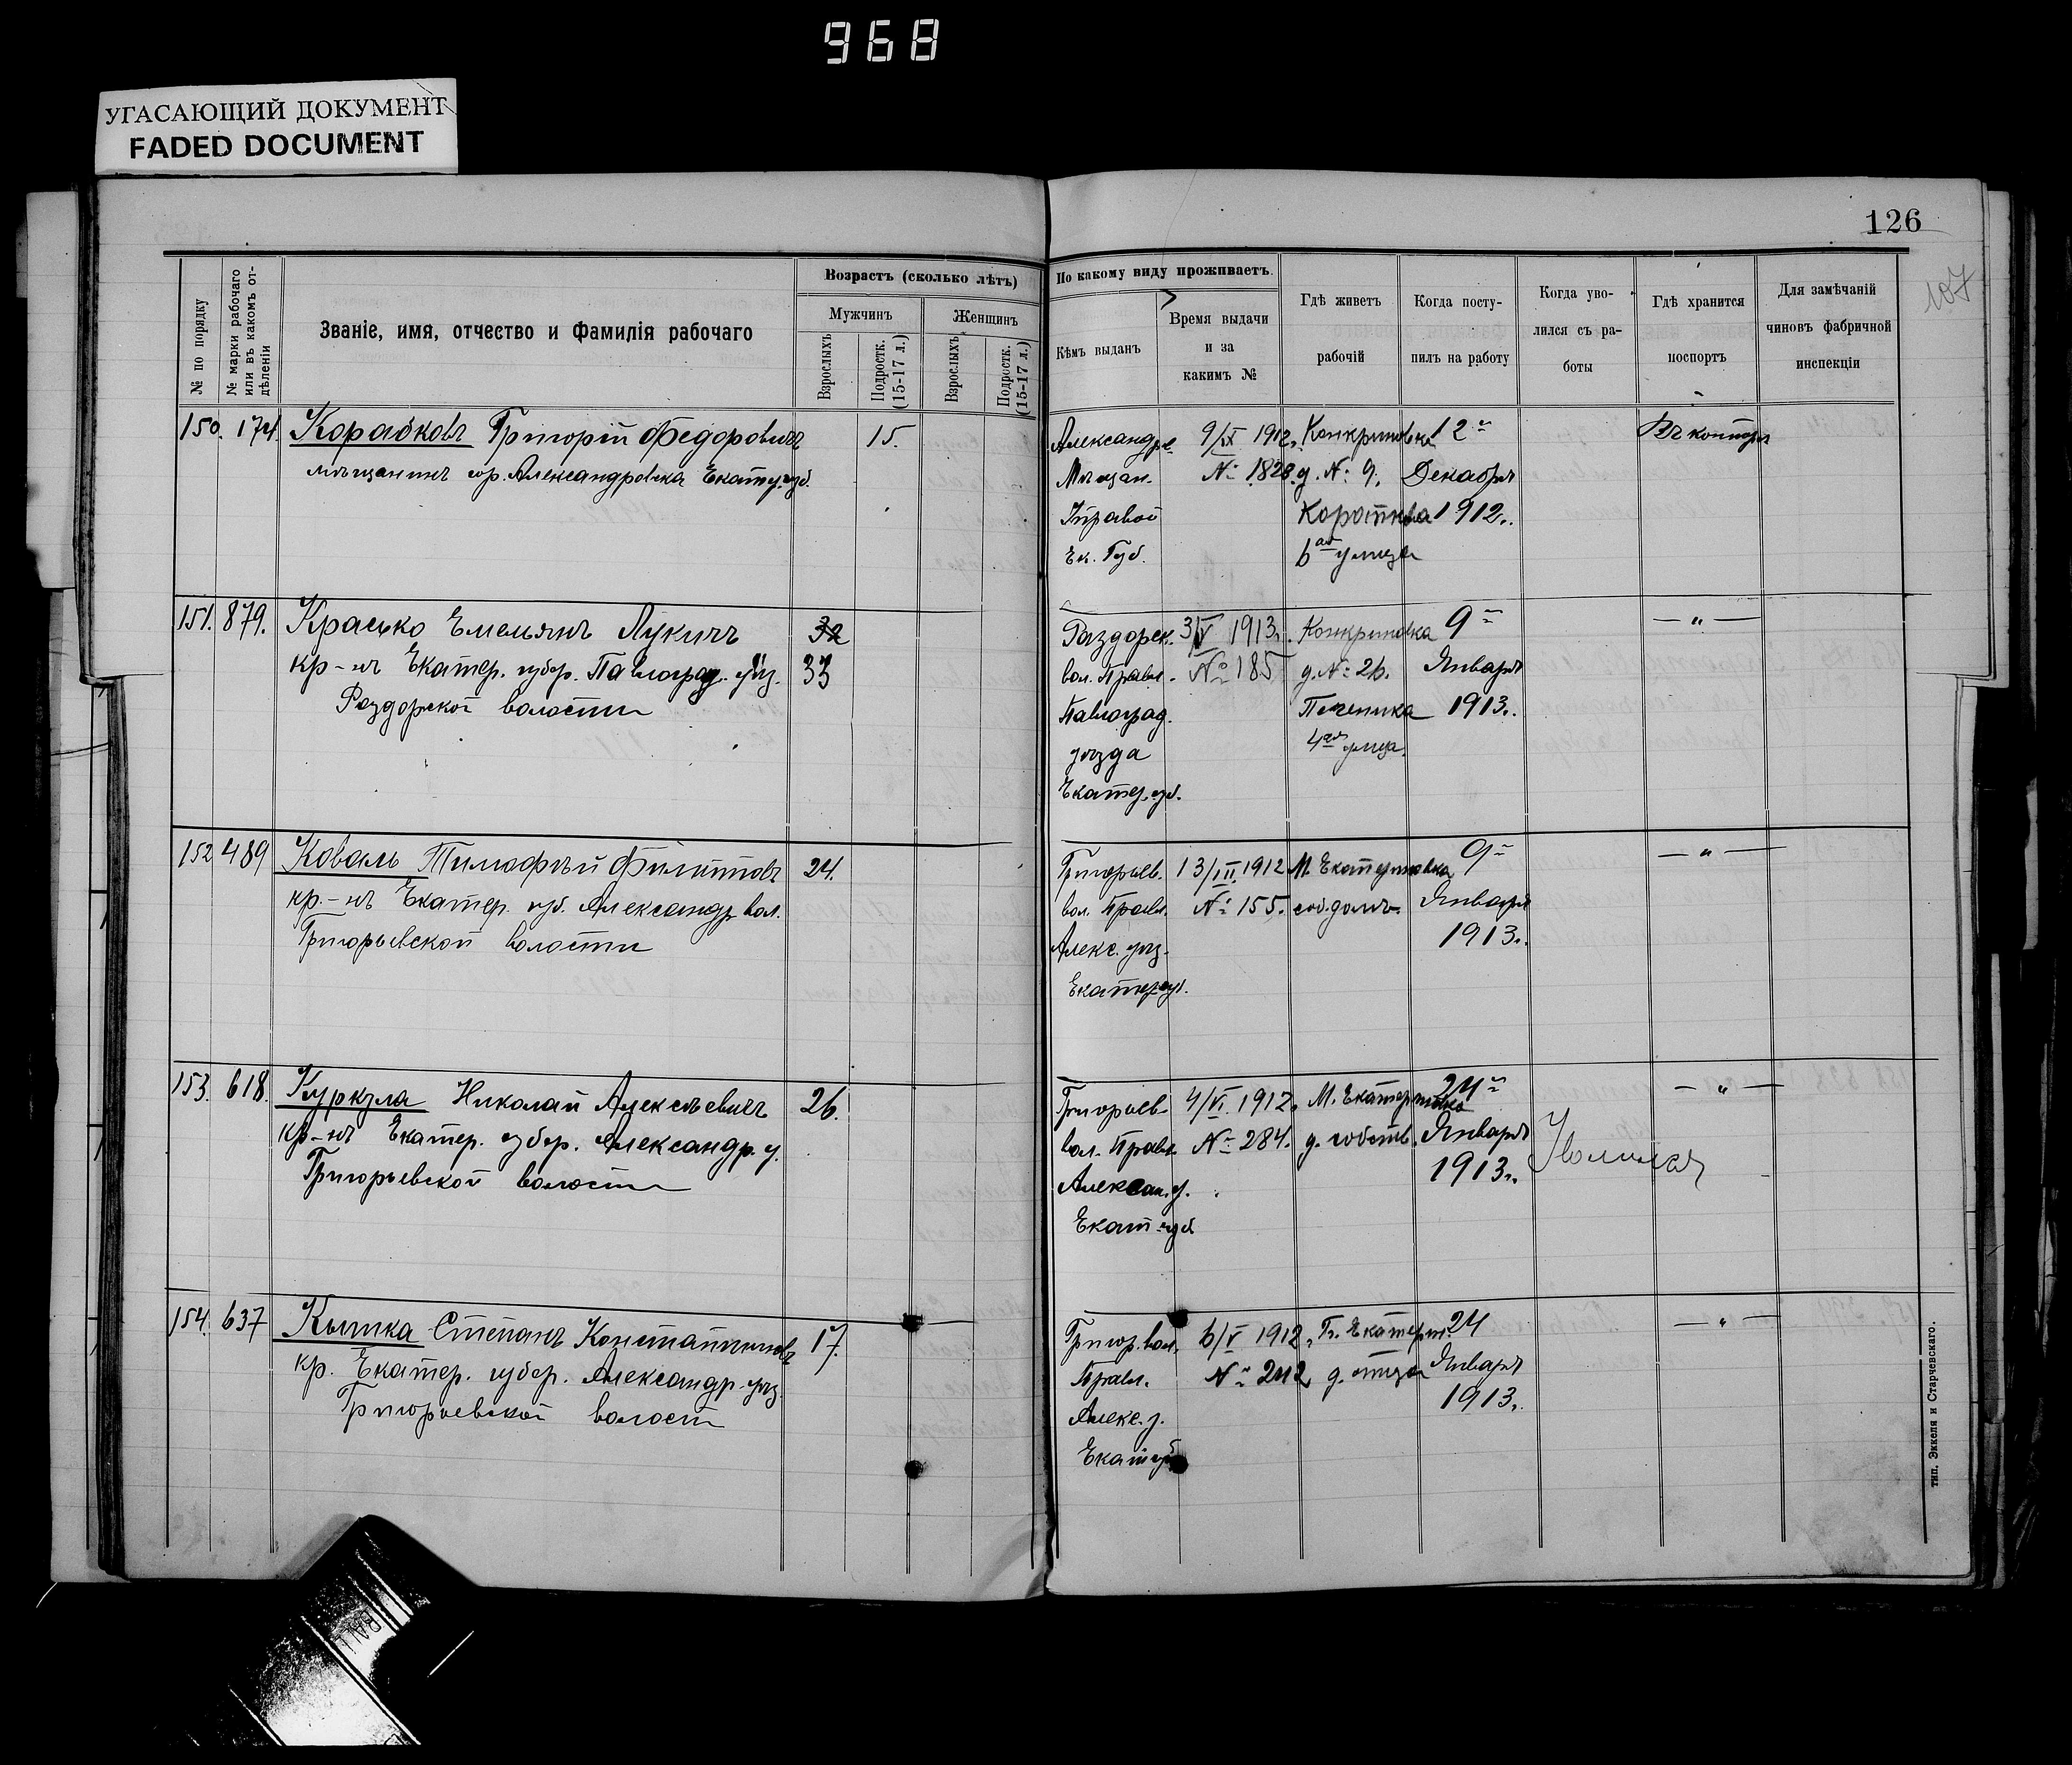 968
УГАСАЮЩИЙ ДОКУМЕНТ
FADED DOCUMENT
126
107
№ по порядку
№ марки рабочаго или въ какомъ отдѣленіи
Званіе, имя, отчество и фамилія рабочаго
Возрастъ (сколько лѣтъ)
Мужчинъ
Женщинъ
Взрослыхъ
Подростк. (15-17 л.)
Взрослыхъ
Подростк. (15-17 л.)
По какому виду проживаетъ.
Кѣмъ выданъ
Время выдачи
и за
какимъ №
Гдѣ живетъ
рабочій
Когда посту-
пилъ на работу
Когда уво-
лился съ ра-
боты
Гдѣ хранится
поспортъ
Для замѣчаній
чиновъ фабричной
инспекціи
150. 174. Корабковъ Григорій Федоровичъ 15.
мѣщанинъ гор. Александровска Екатер. губ.
Александр. 9/IX 1912. 12
Мѣщан. № 1828. д. № 9. Декабря
Управой 1912.
Ек. Губ. 6ая улица
Въ конторѣ
151. 879. Красько Емельянъ Лукичъ 32
кр-нъ Екатер. губер. Павлоград. уѣз. 33
Раздорской волости
Раздорск. 3/V 1913. 9
вол. Правл. № 185 д. № 26. Января
Павлоград. 1913.
уѣзда 4ая улица.
Екатер. губ.
— „ —
152 489 Коваль Тимофѣй Филиповъ 24.
кр-нъ Екатер. губ. Александр. вол.
Григорьевской волости
Григорьев. 13/III 1912 М. Екатериновка 9
вол. Правл. № 155. соб. домъ. Января
Алекс. уѣз. 1913.
Екатер. губ.
— „ —
153. 618. Николай Алексѣевичъ 26.
кр-нъ Екатер. губер. Александр. у.
Григорьевской волости
Григорьев. 4/VI 1912. М. Екатериновка 24
вол. Правл. № 284. д. собств. Января
Алексан. у. 1913.
Екат. губ.
Уволился
— „ —
154. 637 Степанъ Константиновъ 17.
кр. Екатер. губер. Александр. уѣз.
Григорьевской волости
Григор. вол. 6/V 1912. 24
Правл. № 242 д. отца Января
Алекс. у. 1913.
Екат. губ.
— „ —
тип. Эккеля и Старчевскаго.